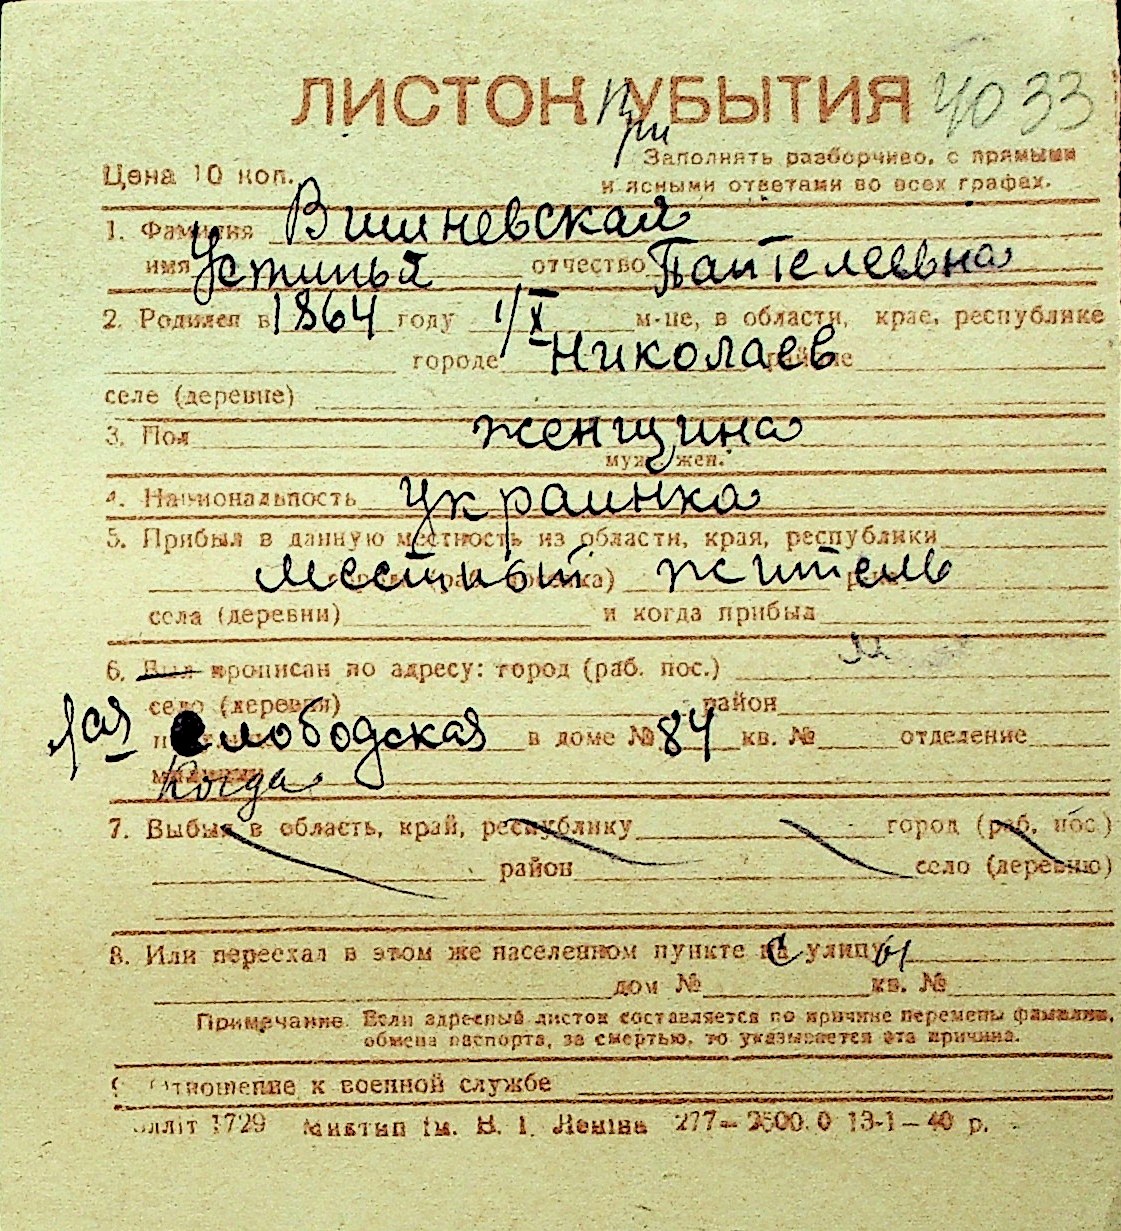 ЛИСТОК При УБЫТИЯ 4033
Цена 10 коп.
Заполнять разборчиво, с прямыми
и ясными ответами во всех графах.
1. Фамилия Вишневская
имя Устинья отчество Пантелеевна
2. Родился в 1864 году 1/X м-це, в области, крае, республике
городе Николаев районе
селе (деревне)
3. Пол женщина
муж. жен.
4. Национальность украинка
5. Прибыл в данную местность из области, края, республики
местный житель
села (деревни) и когда прибыл
6. Был прописан по адресу: город (раб. пос.)
село (деревня) район
1ая Слободская в доме № 84 кв. № отделение
милиции Когда
7. Выбыл в область, край, республику город (раб. пос.)
район село (деревню)
8. Или переехал в этом же населенном пункте с улицы
дом № кв. №
Примечание. Если адресный листок составляется по причине перемены фамилии,
обмена паспорта, за смертью, то указывается эта причина.
9. Отношение к военной службе
1729 Миктип ім. В. І. Леніна 277—2500.0 13-1—40 р.